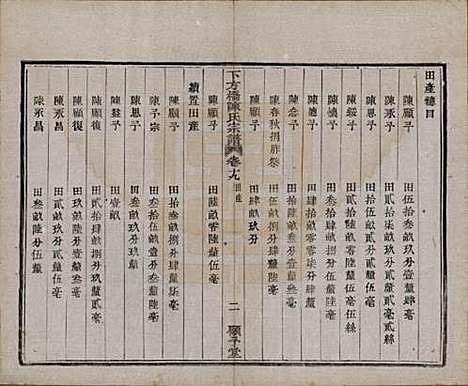 田產總目
陳顯子 田伍畝玖分壹釐肆毫
陳承子 田貳拾柒畝玖分貳釐叁毫
陳綏子 田拾伍畝貳分貳釐伍毫伍絲
陳燒子 田叁拾畝捌分伍釐
陳德子 田貳拾畝零零柒分肆釐
陳念子 田拾陸畝叁分伍釐
陳春秋捌胙祭 田肆拾畝零零肆釐
陳 子 田肆畝玖分
下方橋陳氏宗譜 卷十九 田產 二 顯承堂
陳顯子 田陸畝零陸釐伍毫
續置田產
陳顯子 田叁拾畝捌分肆釐柒毫
陳予宗 田叁拾伍畝壹分叁釐陸毫
陳 子 田叁畝玖分叁釐
陳駐子 田壹畝
陳顯復 田貳拾肆畝貳分伍釐叁毫
陳顯復 田貳拾畝捌分玖釐貳毫
陳承昌 田貳拾叁畝貳釐伍毫
陳承昌 田叁畝陸分伍釐